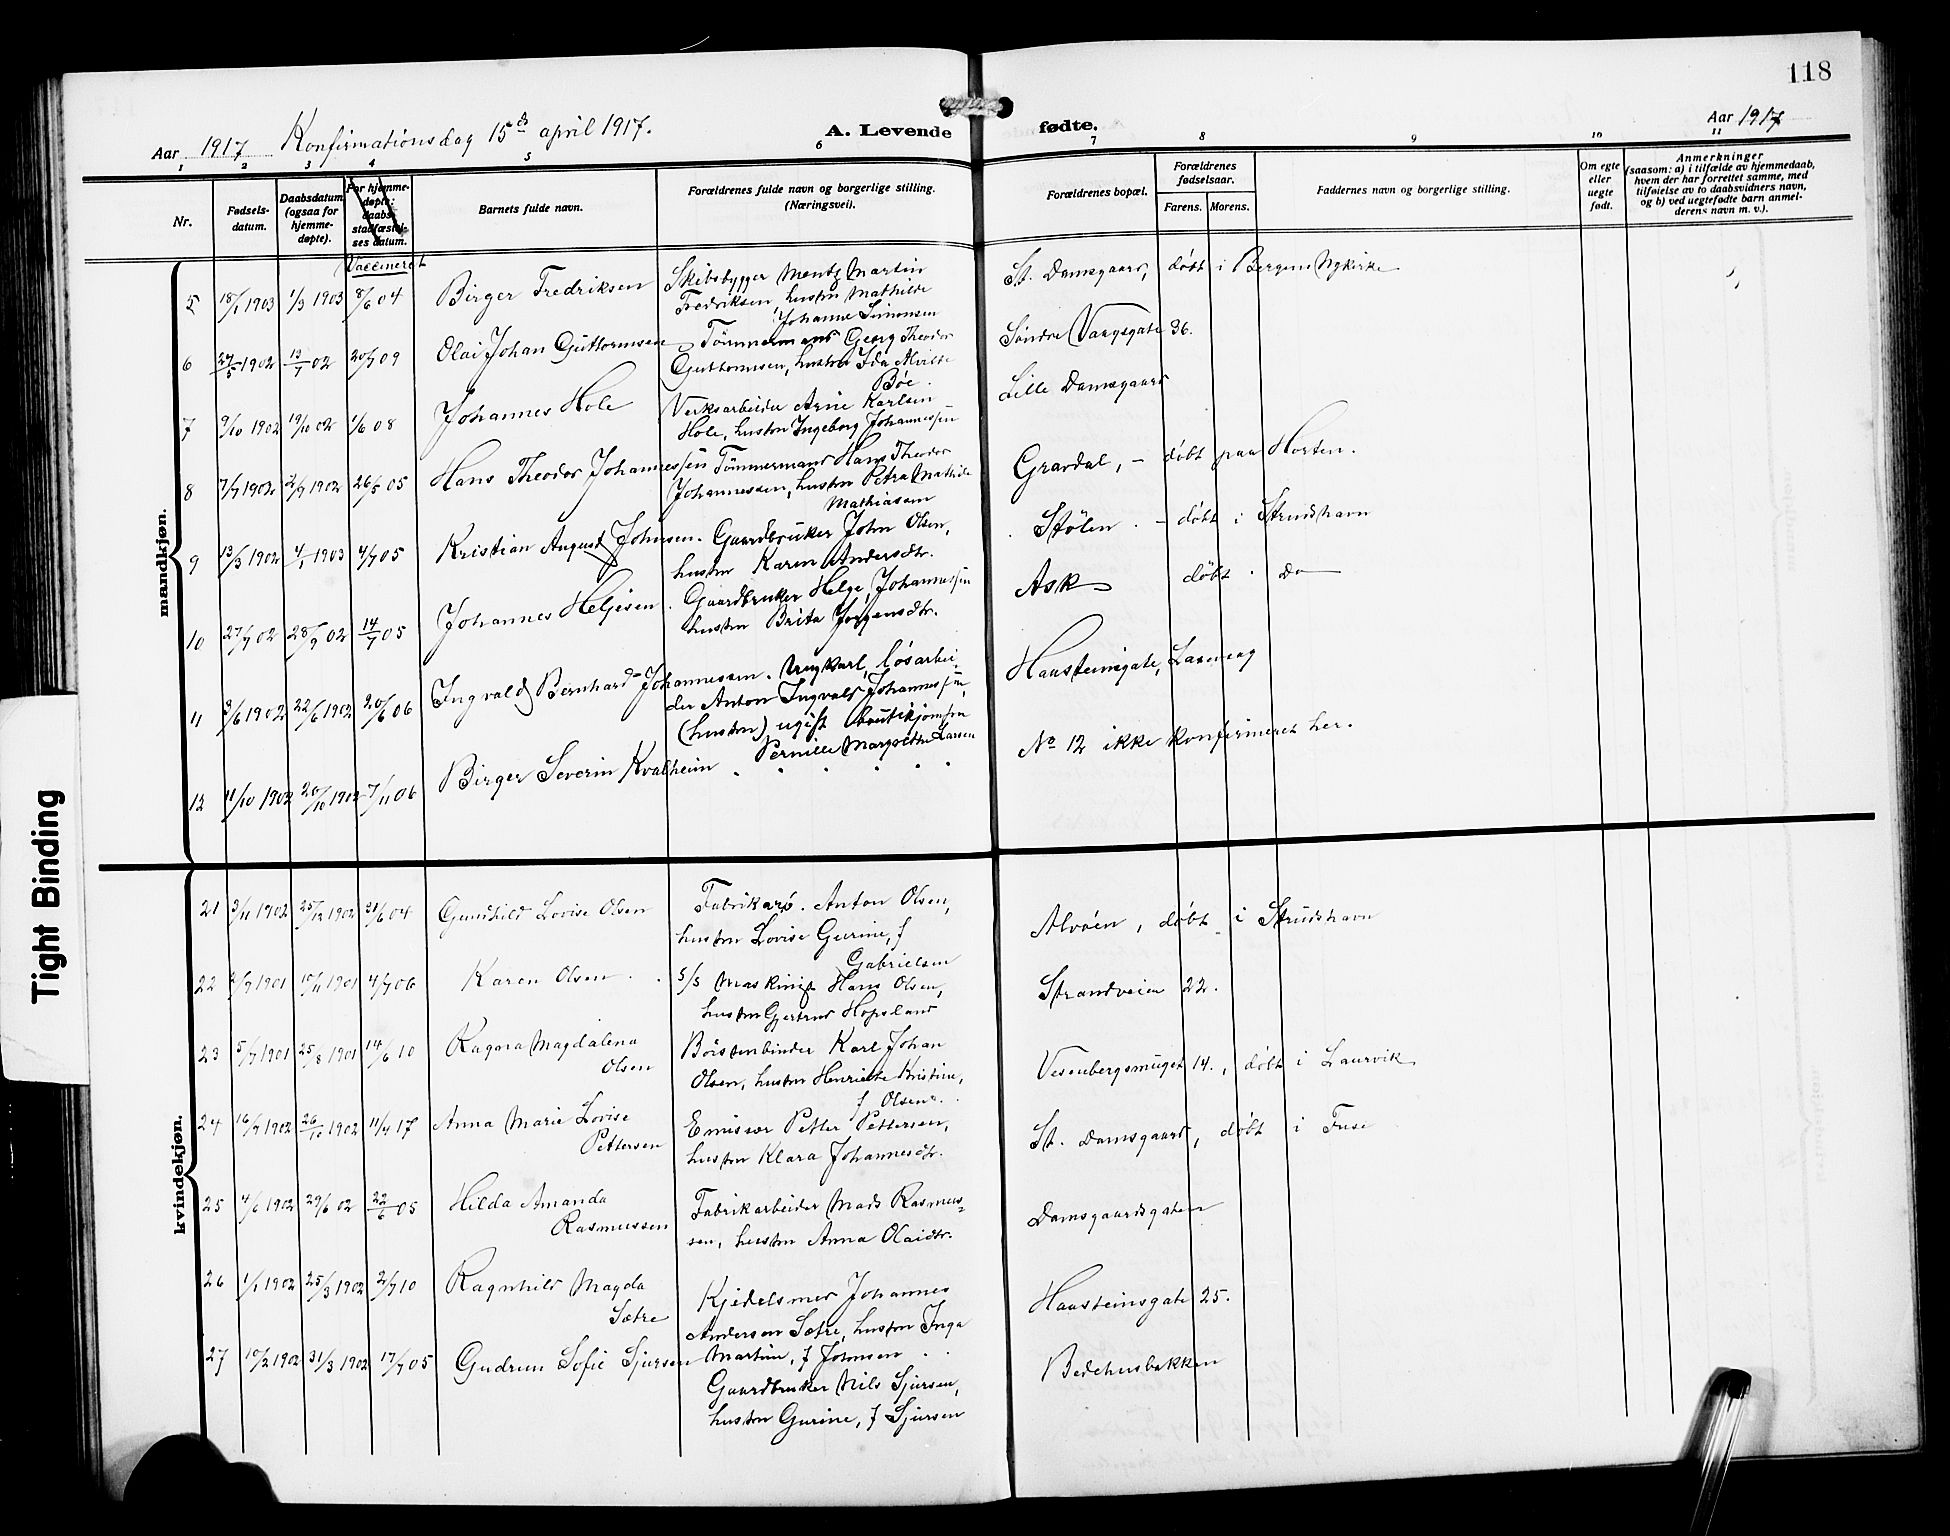 118
Aar 1917 Konfirmationsdag 15de april 1917.
A. Levende fødte.
Aar 1917
1 2 3 4 5 6 7 8 9 10 11
Nr.
Fødsels-
datum.
Daabsdatum
(ogsaa for
hjemme-
døpte).
For hjemme-
døpte:
daabs
stadfæstel-
ses datum.
Vaccineret
Barnets fulde navn.
Forældrenes fulde navn og borgerlige stilling.
(Næringsvei).
Forældrenes bopæl.
Forældrenes
fødselsaar.
Farens. Morens.
Faddernes navn og borgerlige stilling.
Om egte
eller
uegte
født.
Anmerkninger
(saasom: a) i tilfælde av hjemmedaab,
hvem der har forrettet samme, med
tilføielse av to daabsvidners navn,
og b) ved uegtefødte barn anmel-
derens navn m. v.).
mandkjøn.
5 18/1 1903 1/3 1903 8/6 04 Birger Fredriksen
Skibsbygger Mentz Martin
Fredriksen, hustru Mathilde
Johanne Simonsen
St. Damsgaard, døbt i Bergens Nykirke
6 24/5 1902 13/7 02 20/7 09 Olai Johan Guttormsen
Tømmermand Georg Theodor
Guttormsen, hustru Ida Alvilde
Bøe.
Søndre Vaagsgate 36.
7 9/10 1902 19/10 02 1/6 08 Johannes Hole
Verksarbeider Arne Karlsen
Hole, hustru Ingeborg Johannessen
Lille Damsgaard
8 7/7 1902 21/9 1902 26/5 05 Hans Theodor Johannessen
Tømmermand Hans Theodor
Johannessen, hustru Petra Mathilde
Mathiasen
Gravdal, - døbt paa Horten.
9 13/3 1902 4/1 1903 4/7 05 Kristian August Johnsen.
Gaardbruker John Olsen,
hustru Karen Andersdtr.
Stølen. - døbt i Strudshavn
10 27/7 02 28/9 02 14/7 05 Johannes Helgesen.
Gaardbruker Helge Johannessen
hustru Brita Jørgensdtr.
Ask døbt. Do
11 3/6 1902 22/6 1902 20/6 06 Ingvald Bernhard Johannessen.
Ungkarl, løsarbei-
der Anton Ingvald Johannessen,
(hustru) ugift
Pernille Margrethe Larsen
Haasteinsgate, Laxevaag
12 11/10 1902 26/10 1902 7/11 06 Birger Severin Kvalheim
No 12 ikke konfirmeret her.
kvindekjøn.
21 3/11 1902 25/12 1902 21/6 04 Gunhild Lovise Olsen
Fabrikarb. Anton Olsen,
hustru Lovise Gurine, f
Gabrielsen
Alvøen, døbt i Strudshavn
22 2/9 1901 10/11 1901 4/7 06 Karen Olsen.
s/s Maskinist Hans Olsen,
hustru Gjertrud Hopsland
Strandveien 22.
23 5/7 1901 25/8 1901 14/6 10 Ragna Magdalena
Olsen
Børstenbinder Karl Johan
Olsen, hustru Henriette Kristine,
f Olsen.
Vesenbergsmuget 14., døbt i Laurvik
24 16/7 1902 26/10 1902 11/4 17 Anna Marie Lovise
Pettersen
Emissær Petter Pettersen,
hustru Klara Johannesdtr.
St. Damsgaard, døbt i Fuse
25 4/6 1902 29/6 02 22/6 05 Hilda Amanda
Rasmussen
Fabrikarbeider Mads Rasmus-
sen, hustru Anna Olaidtr.
Damsgaardsgaten
26 1/1 1902 25/3 1902 2/7 10 Ragnhild Magda
Sætre
Kjedelsmed Johannes
Andersen Sætre, hustru Inga
Martine, f Johnsen
Haasteinsgate 25.
27 10/2 1902 31/3 1902 17/7 05 Gudrun Sofie Sjursen
Gaardbruker Nils Sjursen,
hustru Gurine, f Sjursen
Bedehusbakken
Tight Binding